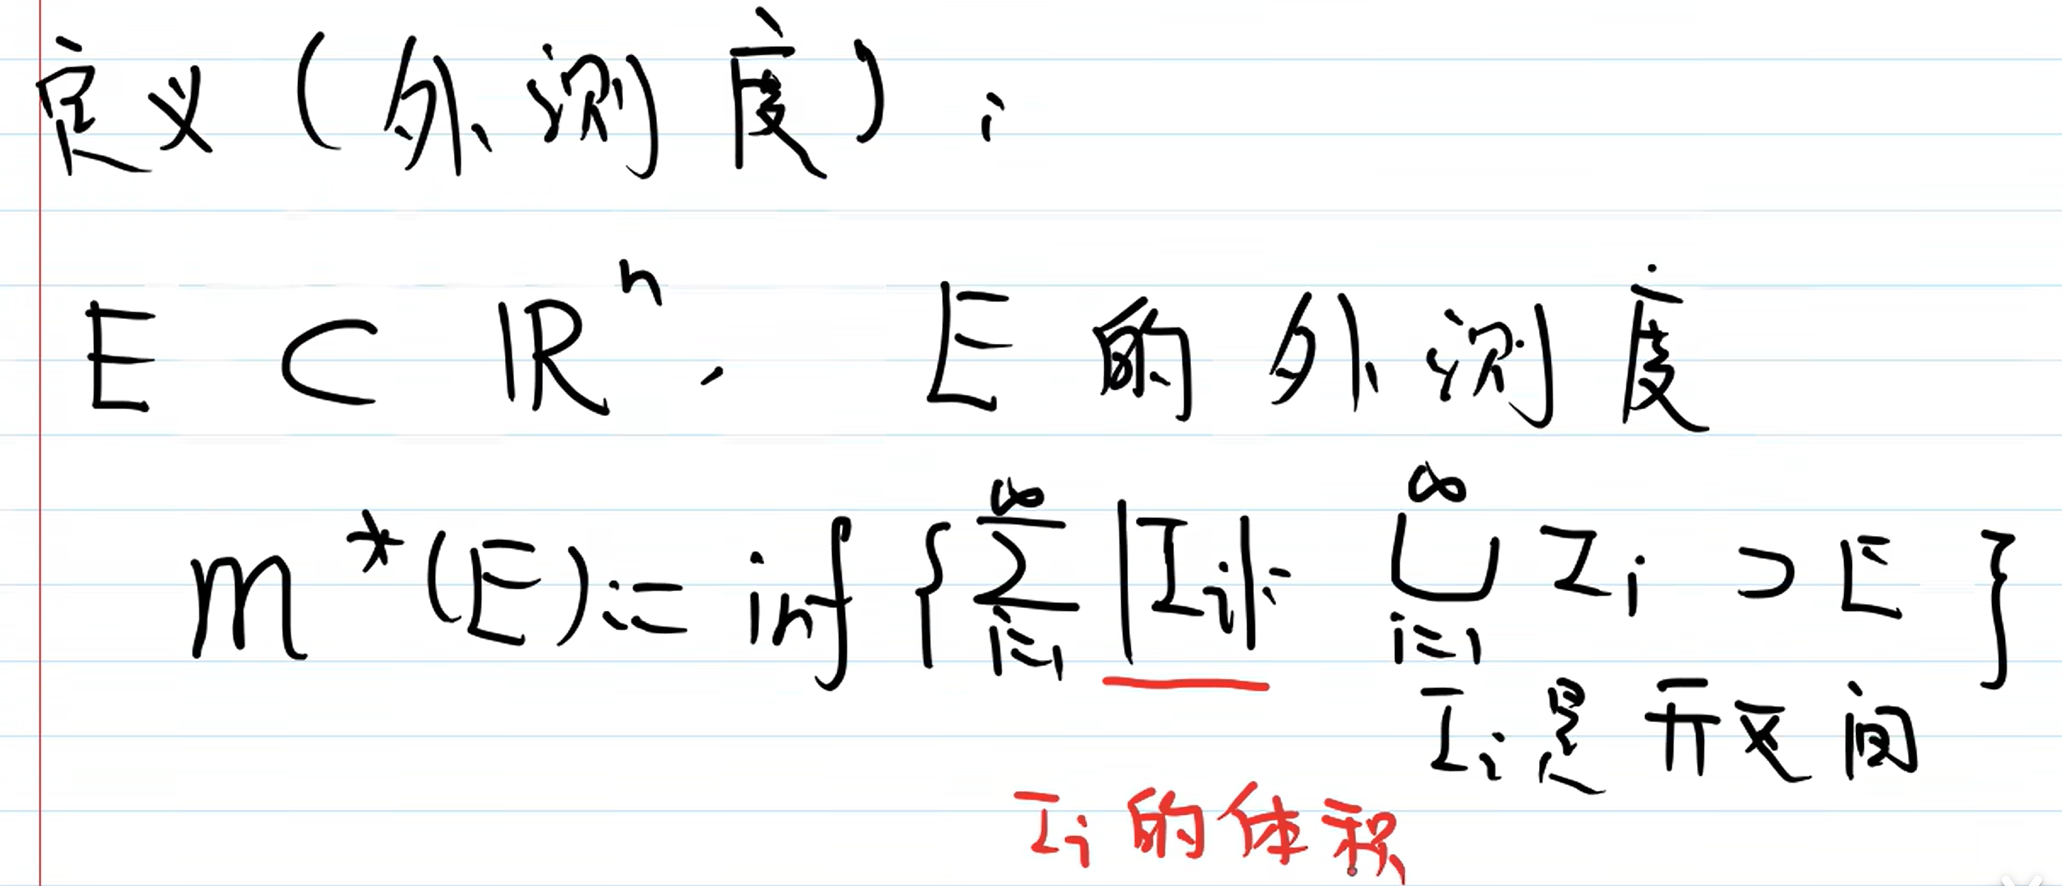 定义(外测度):
E ⊂ ℝⁿ, E 的外测度
m*(E) := inf { ∑_{i=1}^{∞} |I_i| : ⋃_{i=1}^{∞} I_i ⊃ E }
I_i 是开区间
I_i 的体积